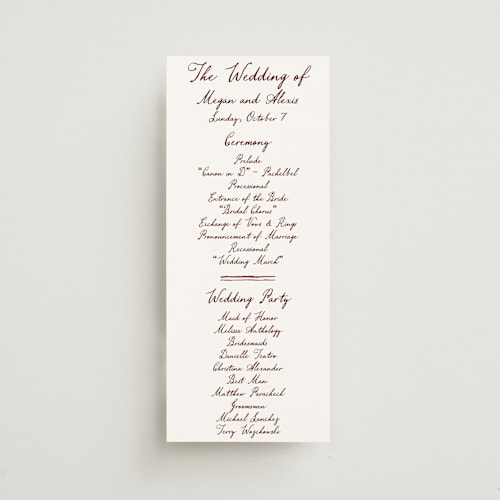 The Wedding of
Megan and Alexis
Sunday, October 7
Ceremony
Prelude
"Canon in D" – Pachelbel
Processional
Entrance of the Bride
"Bridal Chorus"
Exchange of Vows & Rings
Pronouncement of Marriage
Recessional
"Wedding March"
Wedding Party
Maid of Honor
Melissa Anthology
Bridesmaids
Danielle Teatro
Christina Alexander
Best Man
Matthew Paracheck
Groomsmen
Michael Sanchez
Terry Wozchowski